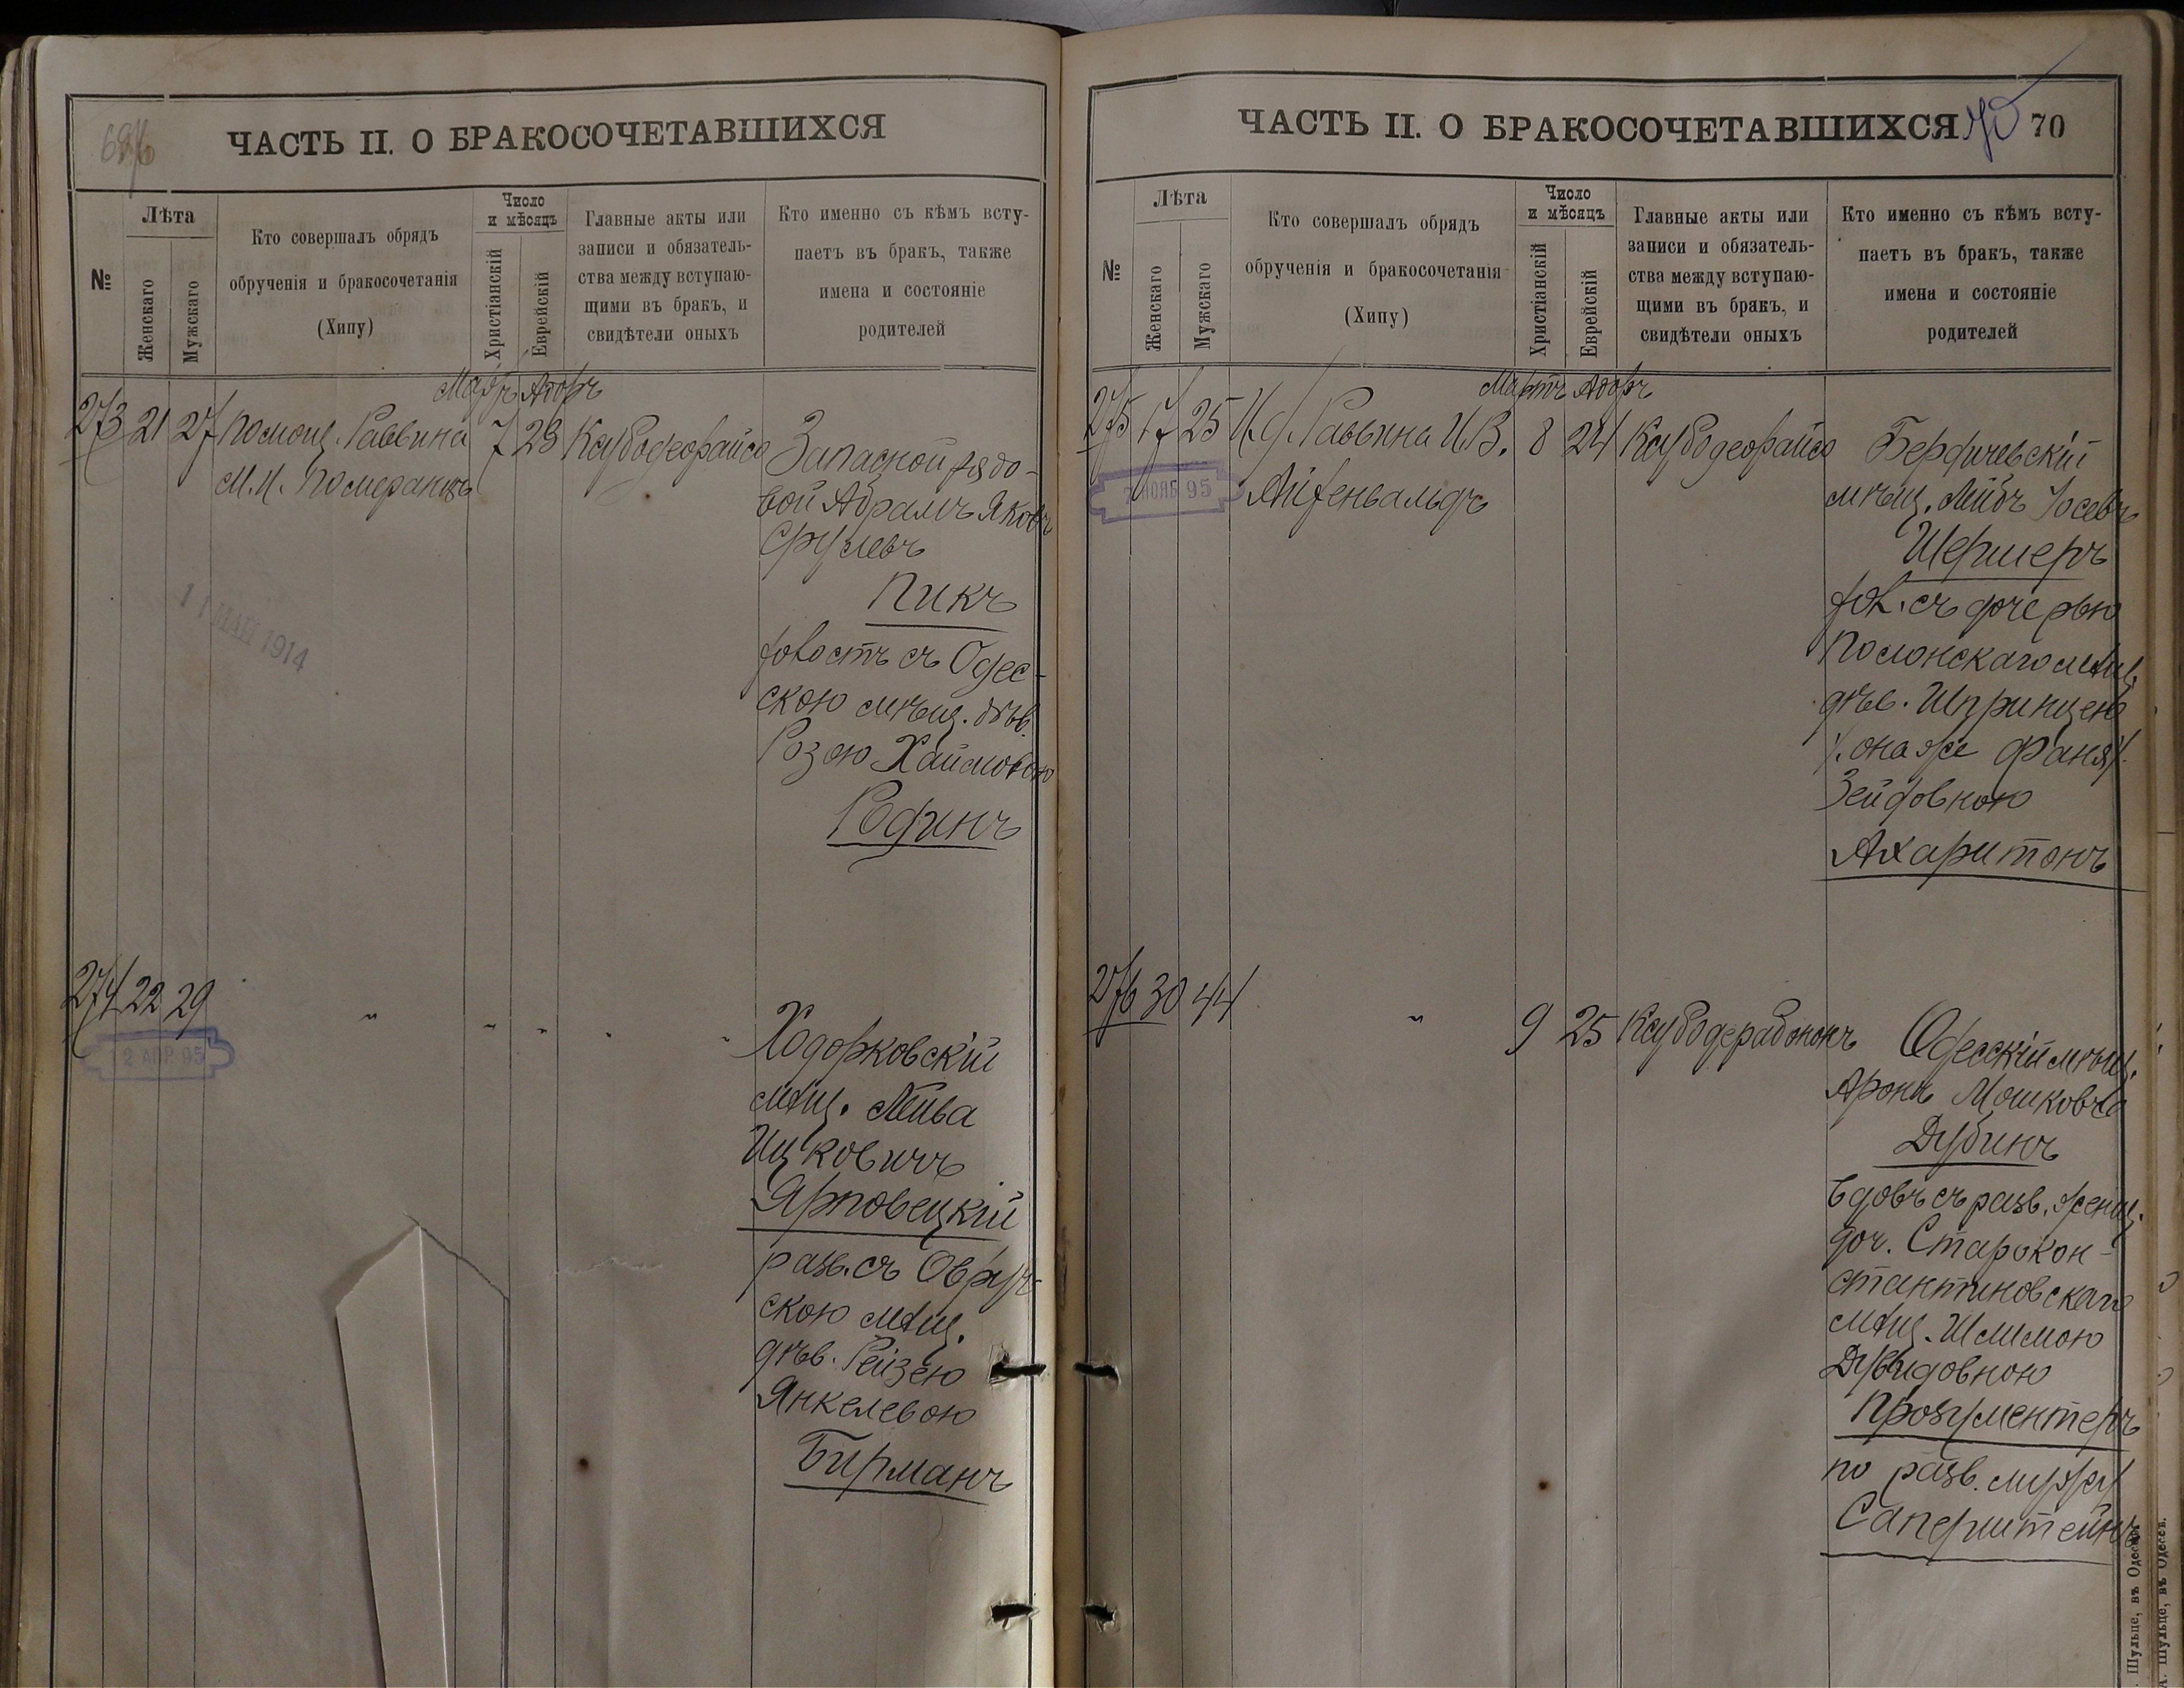 ЧАСТЬ II. О БРАКОСОЧЕТАВШИХСЯ
№
Лѣта
Женскаго
Мужскаго
Кто совершалъ обрядъ
обрученія и бракосочетанія
(Хипу)
Число
и мѣсяцъ
Христіанскій
Еврейскій
Главные акты или
записи и обязатель-
ства между вступаю-
щими въ бракъ, и
свидѣтели оныхъ
Кто именно съ кѣмъ всту-
паетъ въ бракъ, также
имена и состояніе
родителей
Мартъ Адоръ
273 21 27 Помощ. Раввина 7 23 Ксубодеорайсо
М. И. Померанцъ
Запасной рядо-
вой Абрамъ Яковъ
Срулевъ
Пикъ
холостъ съ Одес-
скою мѣщ. дѣв.
Розою Хаимовою
Рединъ
11 МАЙ 1914
274 22 29 " " " " "
12 АПР. 95
Ходорковскій
мѣщ. Лейба
Ицковичъ
Ярповецкій
разв. съ Овруч-
скою мѣщ.
дѣв. Рейзею
Янкелевою
Бирманъ
ЧАСТЬ II. О БРАКОСОЧЕТАВШИХСЯ 70
№
Лѣта
Женскаго
Мужскаго
Кто совершалъ обрядъ
обрученія и бракосочетанія
(Хипу)
Число
и мѣсяцъ
Христіанскій
Еврейскій
Главные акты или
записи и обязатель-
ства между вступаю-
щими въ бракъ, и
свидѣтели оныхъ
Кто именно съ кѣмъ всту-
паетъ въ бракъ, также
имена и состояніе
родителей
Мартъ Адоръ
275 17 25 И. д. Раввина И. В. 8 24 Ксубодеорайсо
Айхенвальдъ
7 НОЯБ 95
Бердичевскій
мѣщ. Лейбъ Іосевъ
Шершеръ
хол. съ дочерью
Полонскаго мѣщ.
дѣв. Шпринцею
/. она же Фаня/.
Зейдовною
Ахаритонъ
276 30 44 " 9 25 Ксубодерабононъ
Одесскій мѣщ.
Аронъ Мошковъ
Дубинъ
вдовъ съ разв. женщ.
доч. Старокон-
стантиновскаго
мѣщ. Шлимою
Дувидовною
Прозументеръ
по разв. мужу
Саперштейнъ
Шульце, въ Одессѣ.
Шульце, въ Одессѣ.